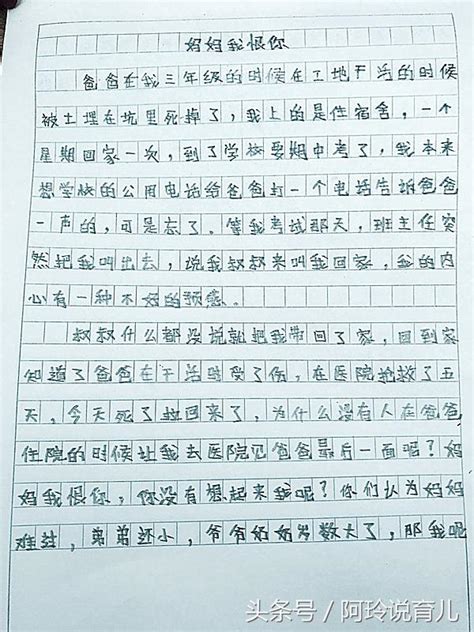 妈妈我恨你
爸爸在我三年级的时候在工地干活的时候
被土埋在坑里死掉了，我上的是住宿舍，一个
星期回家一次，到了学校要期中考了，我本来
想学校的公用电话给爸爸打一个电话告诉爸爸
一声的，可是忘了。等我考试那天，班主任突
然把我叫出去，说我叔叔来叫我回家，我的内
心有一种不好的预感。
叔叔什么都没说就把我带回了家，回到家
知道了爸爸在干活时受了伤，在医院抢救了五
天，今天死了拉回来了，为什么没有人在爸爸
住院的时候让我去医院见爸爸最后一面呢？妈
妈我恨你，你没有想起来我呢？你们认为妈妈
难过，弟弟还小，爷爷奶奶岁数大了，那我呢
头条号/阿玲说育儿